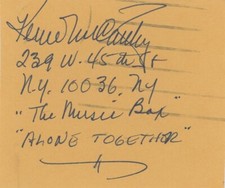 Kevin McCarthy
239 W. 45th St
N.Y. 10036, NY
"The Music Box"
"ALONE TOGETHER"